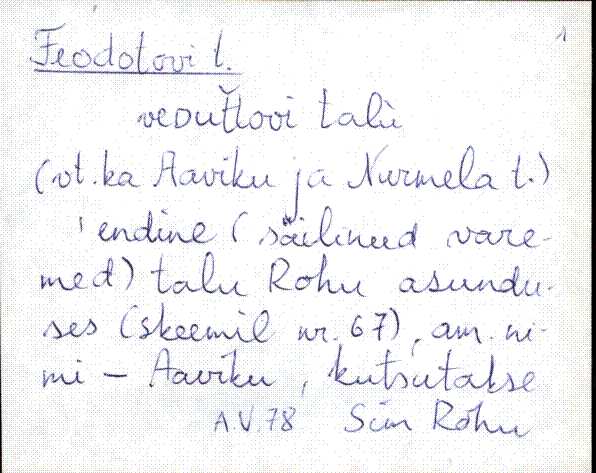 1
Feodotovi t.
veDuťtovi talu
(vt. ka Aaviku ja Nurmela t.)
endine (säilinud vare-
med) talu Rohu asundu-
ses (skeemil nr. 67), am. ni-
mi - Aaviku, kutsutakse
A.V.78 Sim Rõhu